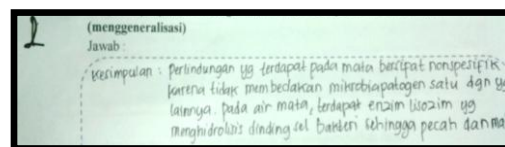 1
(menggeneralisasi)
Jawab :
Kesimpulan : Perlindungan yg terdapat pada mata bersifat nonspesifik
karena tidak membedakan mikrobia patogen satu dgn yg
lainnya. Pada air mata, terdapat enzim lisozim yg
menghidrolisis dinding sel bakteri sehingga pecah dan ma